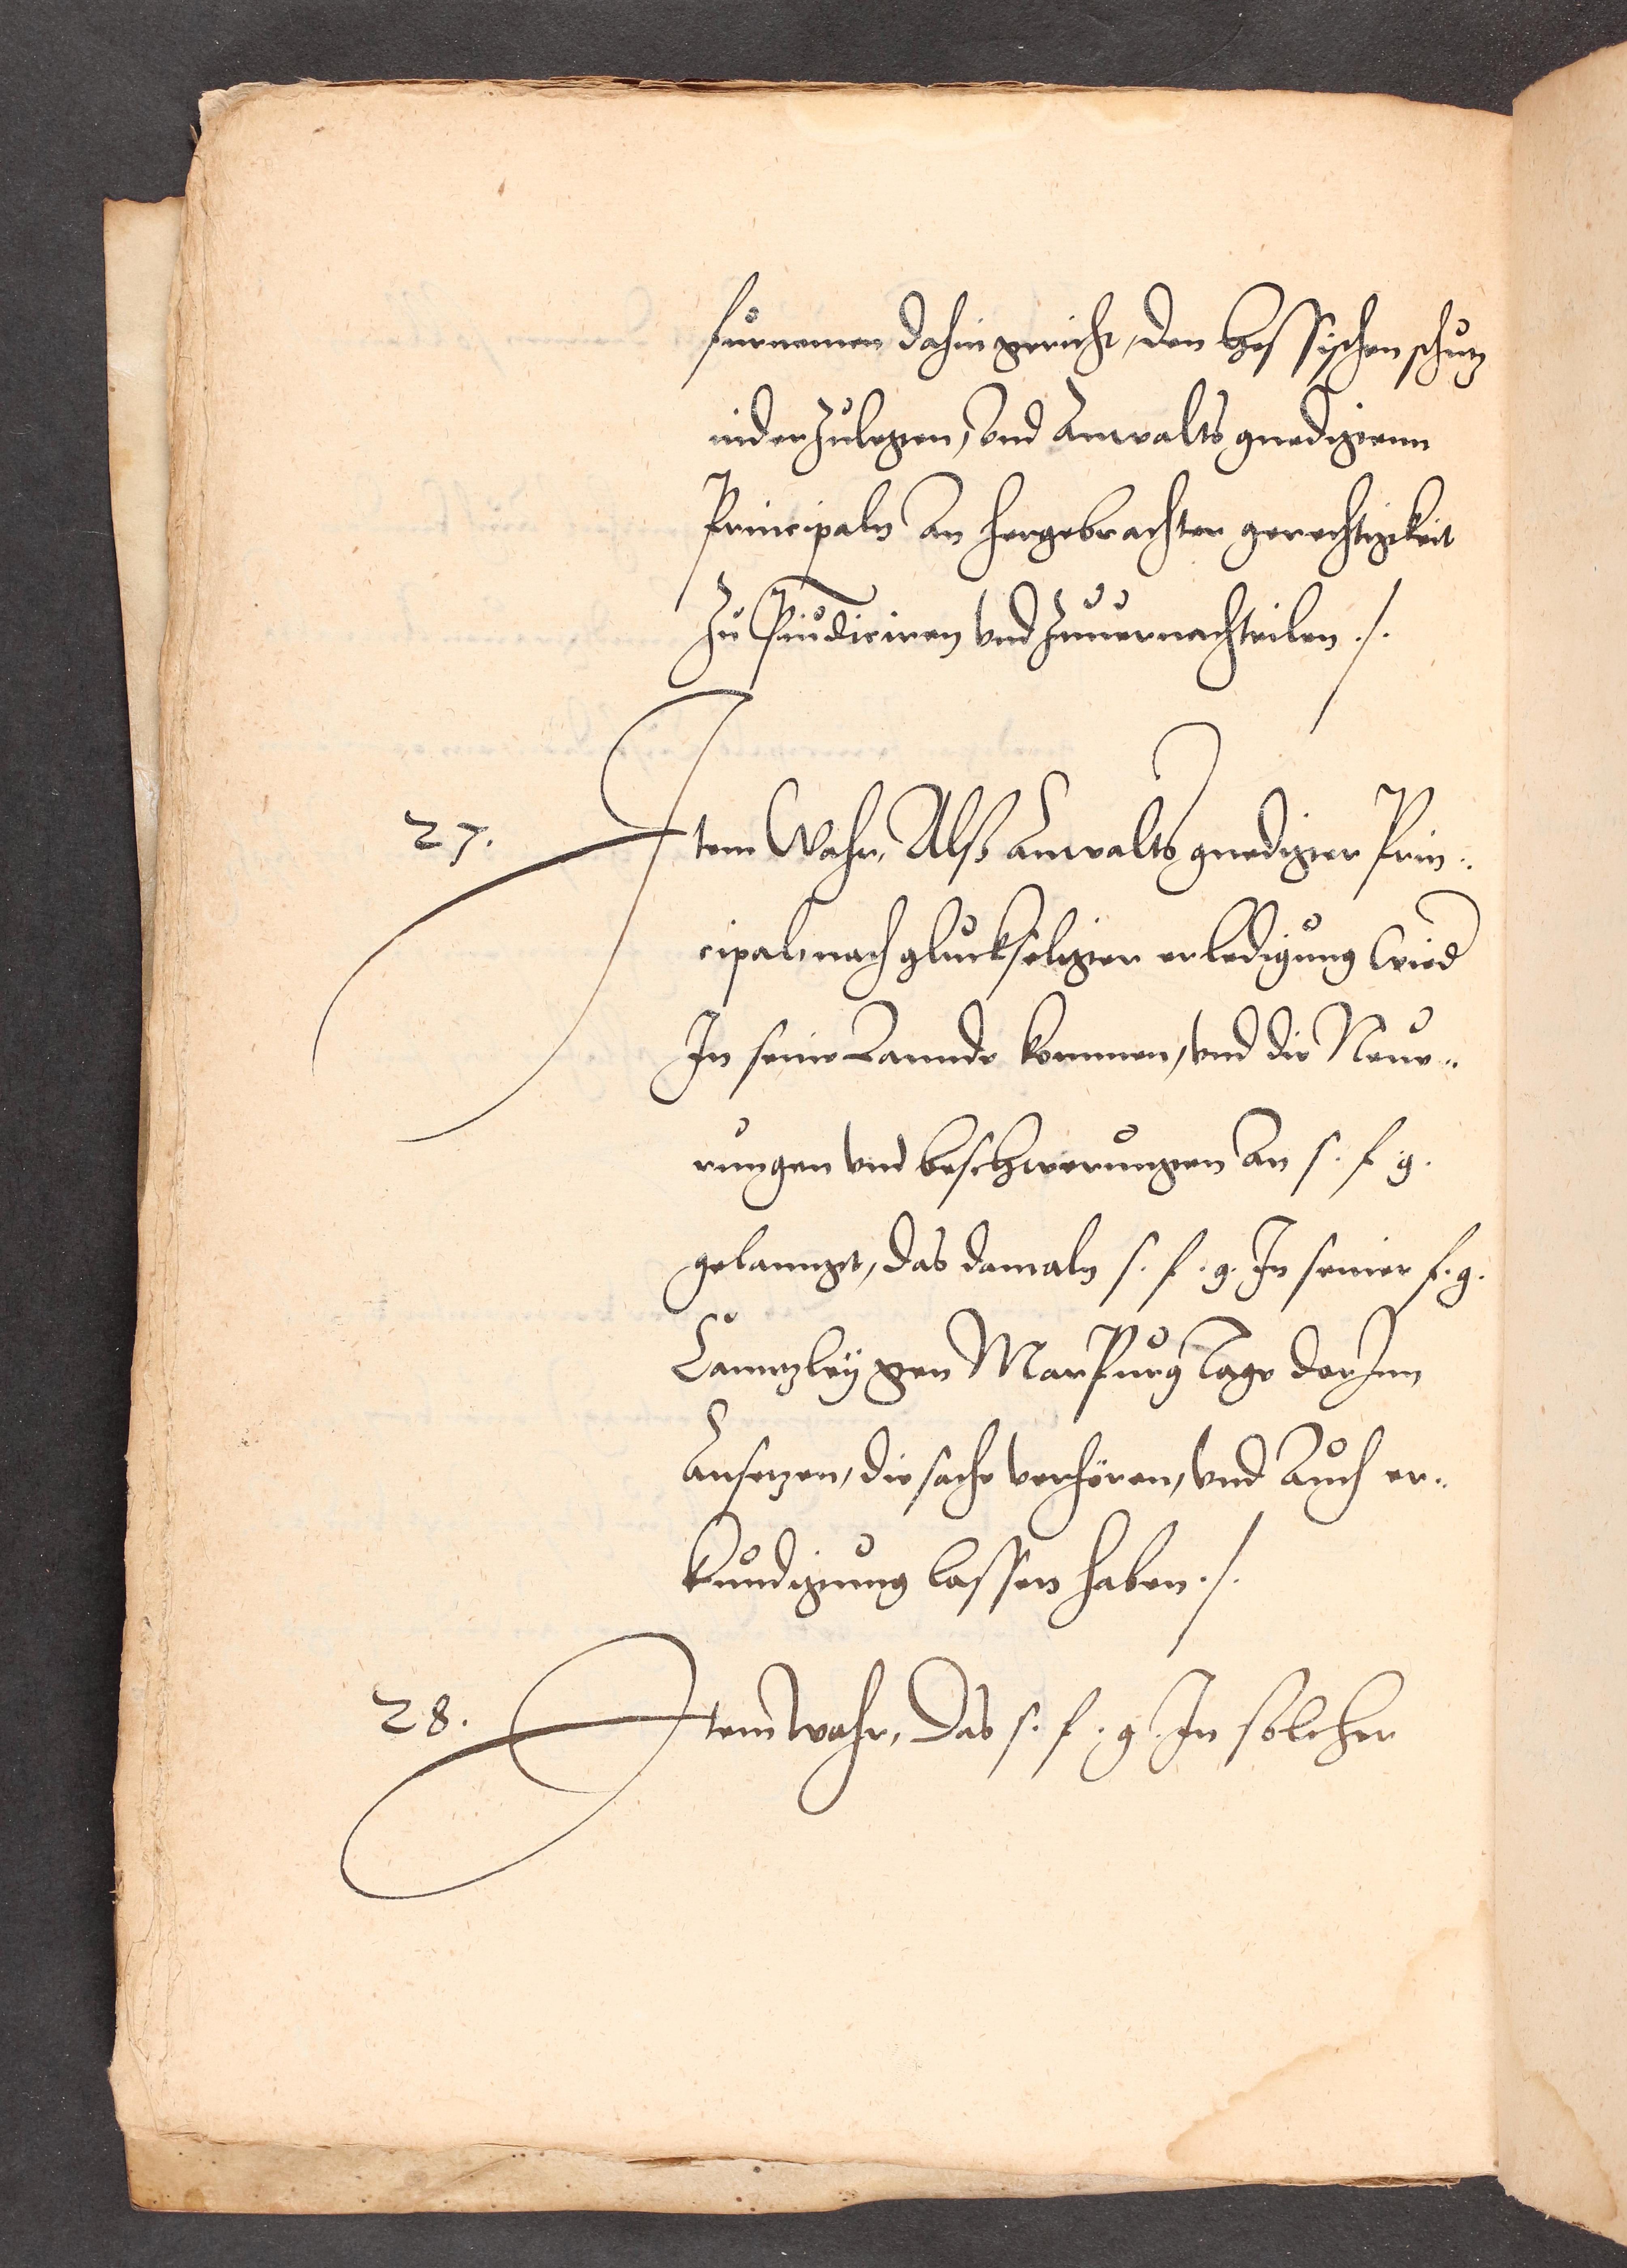 furnemen dahin gericht, den hessischen schutz
niderzulegen, und Anwalts gnedigenn
Principaln an hergebrachter gerechtigkeit
zu P̄iudiciren und zuuernachteilen ./.
27. Item Wahr, Alß Anwalts gnediger Prin„
cipal, nach gluckseliger erledigung wied
In seine Lannde kommen, und die Neue„
rungen und beschwerungen an s. f. g.
gelannget, das damaln s. f. g. In seiner f. g.
Canntzley gen Marpurg tage dorInn
Ansetzen, die sache verhören, und Auch er„
kundigung lassen haben ./.
28. Item wahr, Das s. f. g. In solcher